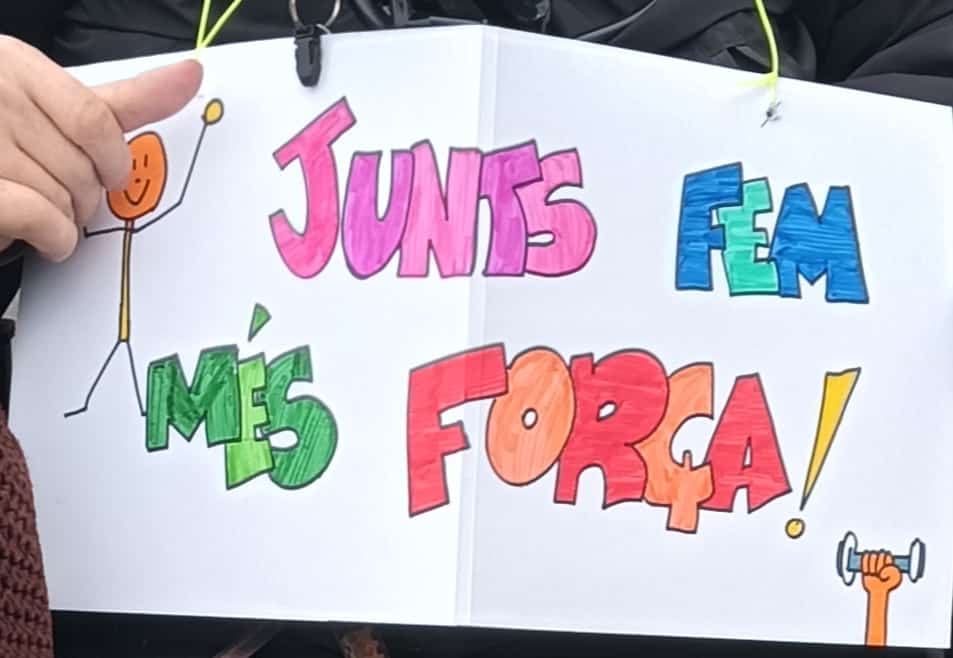 JUNTS FEM
MÉS FORÇA!